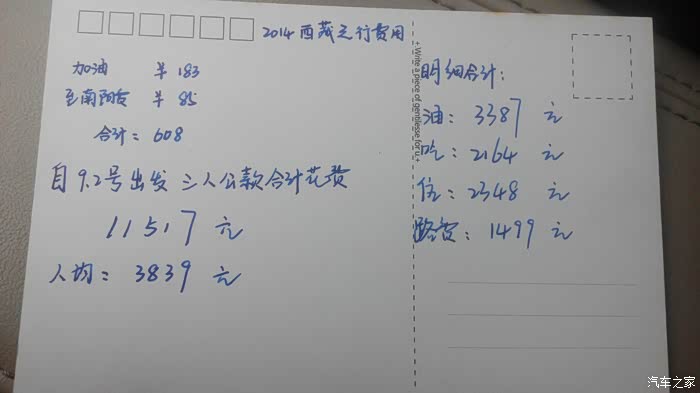 2014西藏之行费用
加油 ¥ 183
至南阳食 ¥ 85
合计: 608
自9.2号出发 三人公款合计花费
11517 元
人均: 3839 元
+ Write a piece of gentlesse for u.+
明细合计:
油: 3387 元
吃: 2164 元
住: 2348 元
路费: 1499 元
汽车之家